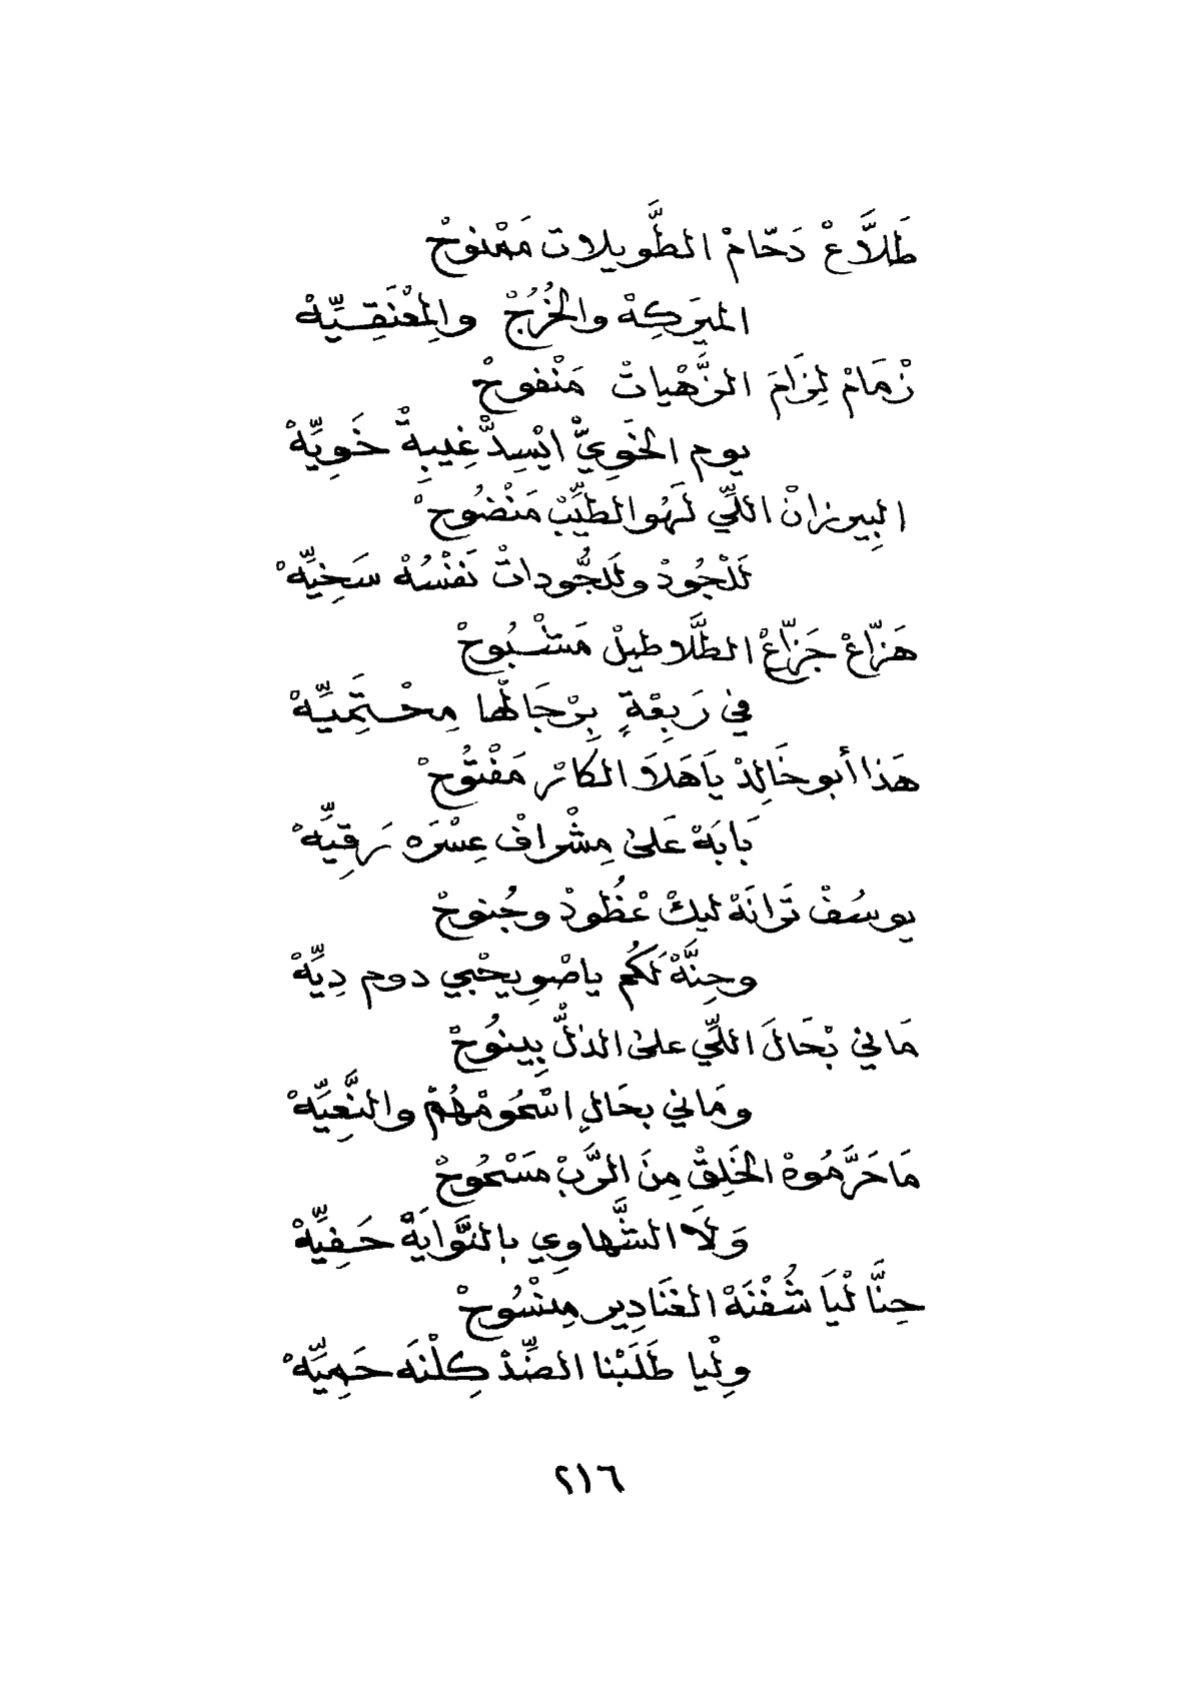 طَلاَّعْ دَحّامْ الطَّويلات مَمْنوحْ
المبرَكِهْ والخُرُجْ والِمْعْنَقِيِّهْ
زْمَامْ لِزَامَ الزَّهْياتْ مَنْفوحْ
يوم الخَوِيّْ ايْسِدّْ غِيبِةْ خَوِيِّهْ
البِيرزانْ اللِّي لَهُو الطيِّبْ مَنْضُوحْ
لَلْجُودْ وللَجُّوداتْ نَفْسُهْ سَخِيِّهْ
هَزّاعْ جَزّاعْ الطَّلاطيلْ مَشْبُوحْ
في رَبِعْةٍ بِرْجَالْها مِحْتِمِيِّهْ
هَذا أبو خَالِدْ يَاهَلاَ الكاثر مَفْتُوحْ
بَابَهْ عَلى مِشْرافْ عِسْرَه رَقِيِّهْ
يوسُفْ تَرانَهْ ليكْ عْظُودْ وجُنوحْ
وحِنَّهْ لَكُم ياصْوِيحْبي دوم دِيِّهْ
مَاني بْحَالَ اللِّي على الذلّْ بِينُوحْ
ومَاني بحَالِ اسْمُومْهُمْ والنَّعِيِّهْ
مَاحَرَّمُوهْ الخَلِقْ مِنَ الرَّبْ مَسْمُوحْ
وَلاَ الشَّهاوِي بالنَّوايَهْ حَفِيِّهْ
حِنَّا لْيَا شُفْنَهْ الغَنَادِير مِنْسُوحْ
ولْيا طَلَبْنا الضِّدْ كِلْنَه حَمِيِّهْ
٢١٦